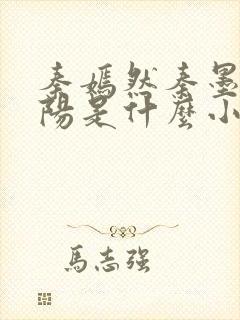 秦嫣然秦墨
陽是什麼小
馬志強